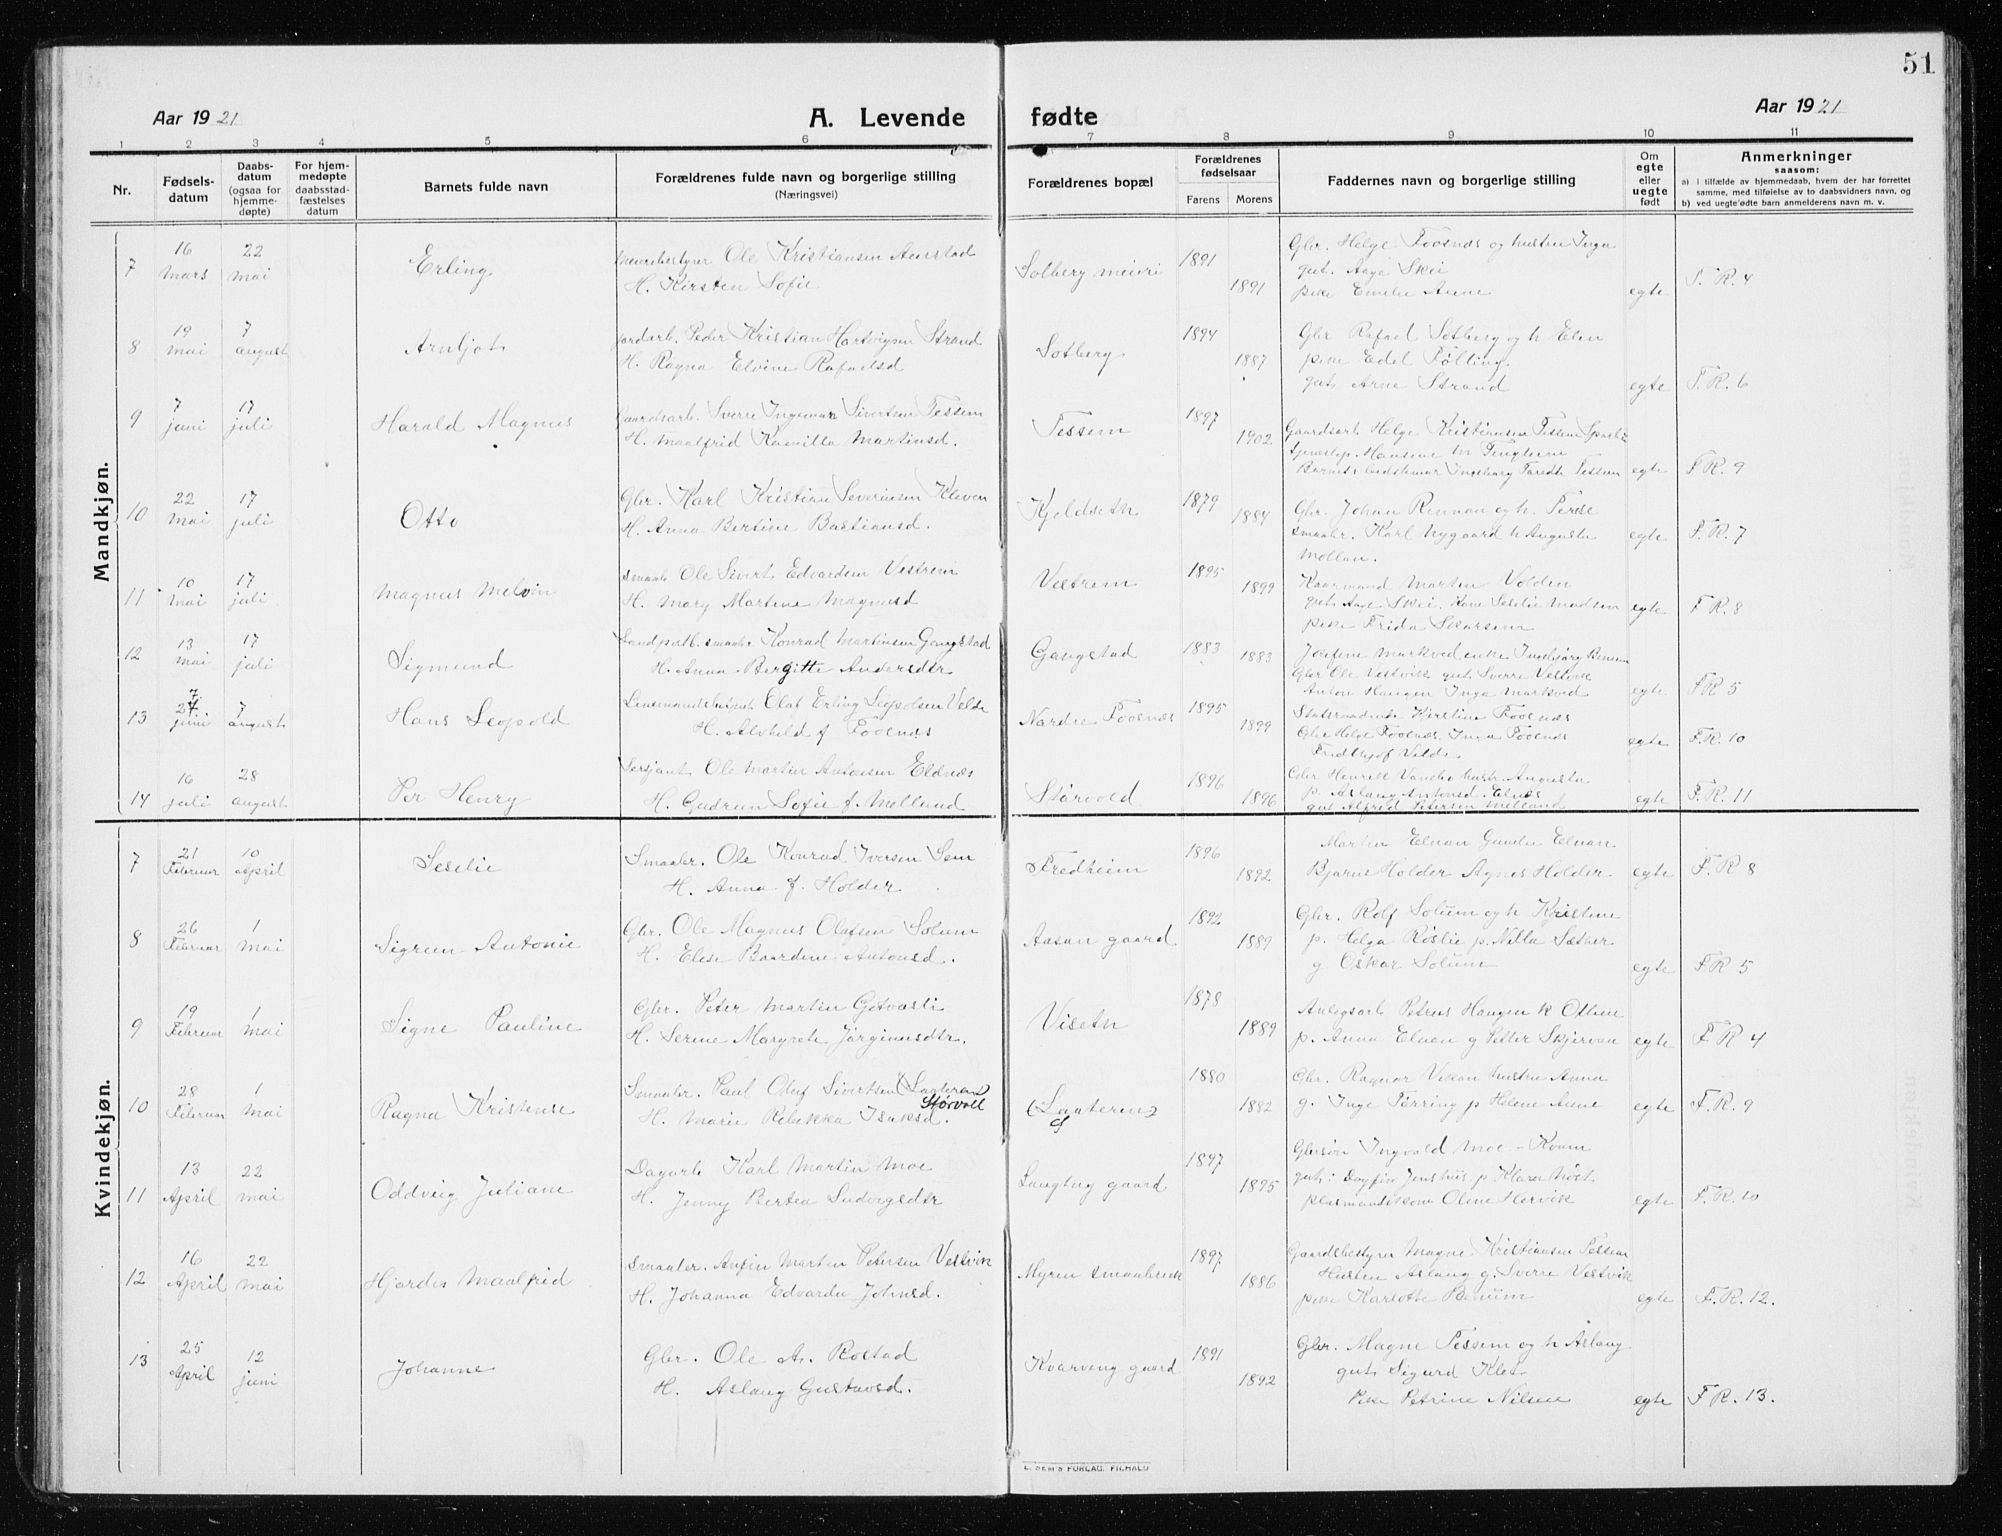 51
Aar 1921 A. Levende fødte Aar 1921
1 2 3 4 5 6 7 8 9 10 11
Nr.
Fødsels-
datum
Daabs-
datum
(ogsaa for
hjemme-
døpte)
For hjem-
medøpte
daabsstad-
fæstelses
datum
Barnets fulde navn
Forældrenes fulde navn og borgerlige stilling
(Næringsvei)
Forældrenes bopæl
Forældrenes
fødselsaar
Farens Morens
Faddernes navn og borgerlige stilling
Om
egte
eller
uegte
født
Anmerkninger
saasom:
a) i tilfælde av hjemmedaab, hvem der har forrettet
samme, med tilføielse av to daabsvidners navn, og
b) ved uegte fødte barn anmelderens navn m. v.
Mandkjøn.
7 16 mars 22 mai Erling
Meieribestyrer Ole Kristiansen Aenstad
H. Kirsten Sofie
Solberg meieri 1891 1891
Gbr. Helge Foosnæs og hustru Inga
gut. Aage Skei
pike Emelie Anne
egte F. R. 4
8 19 mai 7 august Arnljot
jordarb. Peder Kristian Hartvigsen Strand
H. Ragna Elvine Rafaelsd
Solberg 1894 1887
Gbr Rafael Solberg og h Elen
pike Edel Følling
gut Arne Strand
egte F. R. 6
9 7 juni 17 juli Harald Magnus
Gaardsarb. Sverre Ingeman Sivertsen Tessem
H. Maalfrid Kamilla Martinsd.
Tessem 1897 1902
Gaardsarb Helge Kristiansen Tessem
Barnets bedstemor Ingeborg Tessem
egte F R. 9
10 22 mai 17 juli Otto
Gbr. Karl Kristian Severinsen Kleven
H. Anna Bertine Bastiansd.
Kjeldseth 1879 1884
Gbr. Johan Rennan og h.
smaabr. Karl Nygaard h Augusta
Mollan.
egte F. R. 7
11 10 mai 17 juli Magnus Melvin
Smaab Ole Sivert Edvardsen Vestrem
H. Mary Martine Magnusd
Vestrem 1895 1899
Kaarmand Marten Volden
gut Aage Skei. Kone Seselie Madsen
pike Frida Skarsem
egte F R. 8
12 13 mai 17 juli Sigmund
Landpostb. smaabr Konrad Martinsen Gangstad
H. Anna Bergitte Andersdtr
Gangstad 1883 1883
Josefine Markved enke Ingeborg Benum
Gbr Ole Vestvik gut Sverre Vestvik
Anton Haugen Inga Markved
egte F R 5
13 27 juni 7 august Hans Leopold
Lensmandsbetjent Olaf Erling Leopoldsen Velde
H. Alvhild f Foosnæs
Nordre Foosnæs 1895 1899
Kirstine Foosnæs
Gbr Helge Foosnæs, Inga Foosnæs
Fridthjof Velde
egte F.R. 10
14 16 juli 28 august Per Henry
Sersjant Ole Martin Antonsen Eldnæs
H. Gudrun Sofie f. Melland
Størvold 1896 1896
Gbr Henrik hustr. Augusta
p. Aslaug Antonsd. Elnæs
gut Alfred Petersen Melland
egte F.R. 11
Kvindekjøn.
7 21 Februar 10 April Seselie
Smaabr. Ole Konrad Iversen Sem
H. Anna f. Holder
Fredheim 1896 1892
Marten Elnan Elnan
Bjarne Holder Agnes Holder.
egte F. R 8
8 26 Februar 1 Mai Sigrun Antonie
Gbr. Ole Magnus Olafsen Solum
H. Elise Baardine Antonsd.
Aasan gaard 1892 1889
Gbr. Rolf Solum og h Kristine
p. Helga Røslie p. Nilla Sæther
g Oskar Solum
egte F R 5
9 19 Februar 1 mai Signe Pauline
Gbr. Peter Martin Gotvasli
H. Serine Margrete Jørginusdtr.
Viseth 1878 1889
Anlegsarb Petrus Haugen k Oline
p. Anna Elnan g Petter Skjervan
egte F. R 4
10 28 Februar 1 Mai Ragna Kristense
Smaabr. Paul Oluf Sivertsen (Laateren)
Størvoll
H. Marie Rebekka Isaksd.
(Laateren) 1880 1882
Gbr. Ragnar Vikan hustru Anna
g. Inge Tørring p Helene Anne
egte F. R. 9
11 13 April 22 mai Oddveig Juliane
Dagarb Karl Martin Moe
H. Jenny Bertea Ludvigsdtr
Langhug gaard 1897 1895
Gbrsøn Ingvald Moe - Kvam
gut: Dagfin Jenshus p Klara Høst
Oline Hervik
egte F. R. 10
12 16 April 22 mai Hjørdis Maalfrid
Smaabr. Anfin Marten Petersen Vestvik
H. Johanna Edvarda Johnsd.
Myren smaabruk 1897 1886
Gaardsbestyrer Magne Kristiansen Tessem
Hustru Aslaug g. Sverre Vestvik
pike Karlotte Benum
egte F. R. 12.
13 25 April 12 juni Johanne
Gbr. Ole A. Rostad
H. Aslaug Gustavsd.
Kvarving gaard 1891 1892
Gbr. Magne Tessem og h Aslaug
gut Sigurd Klet
Pike Petrine Nilsen
egte F R. 13.
E. SEM'S FORLAG. FR.HALD